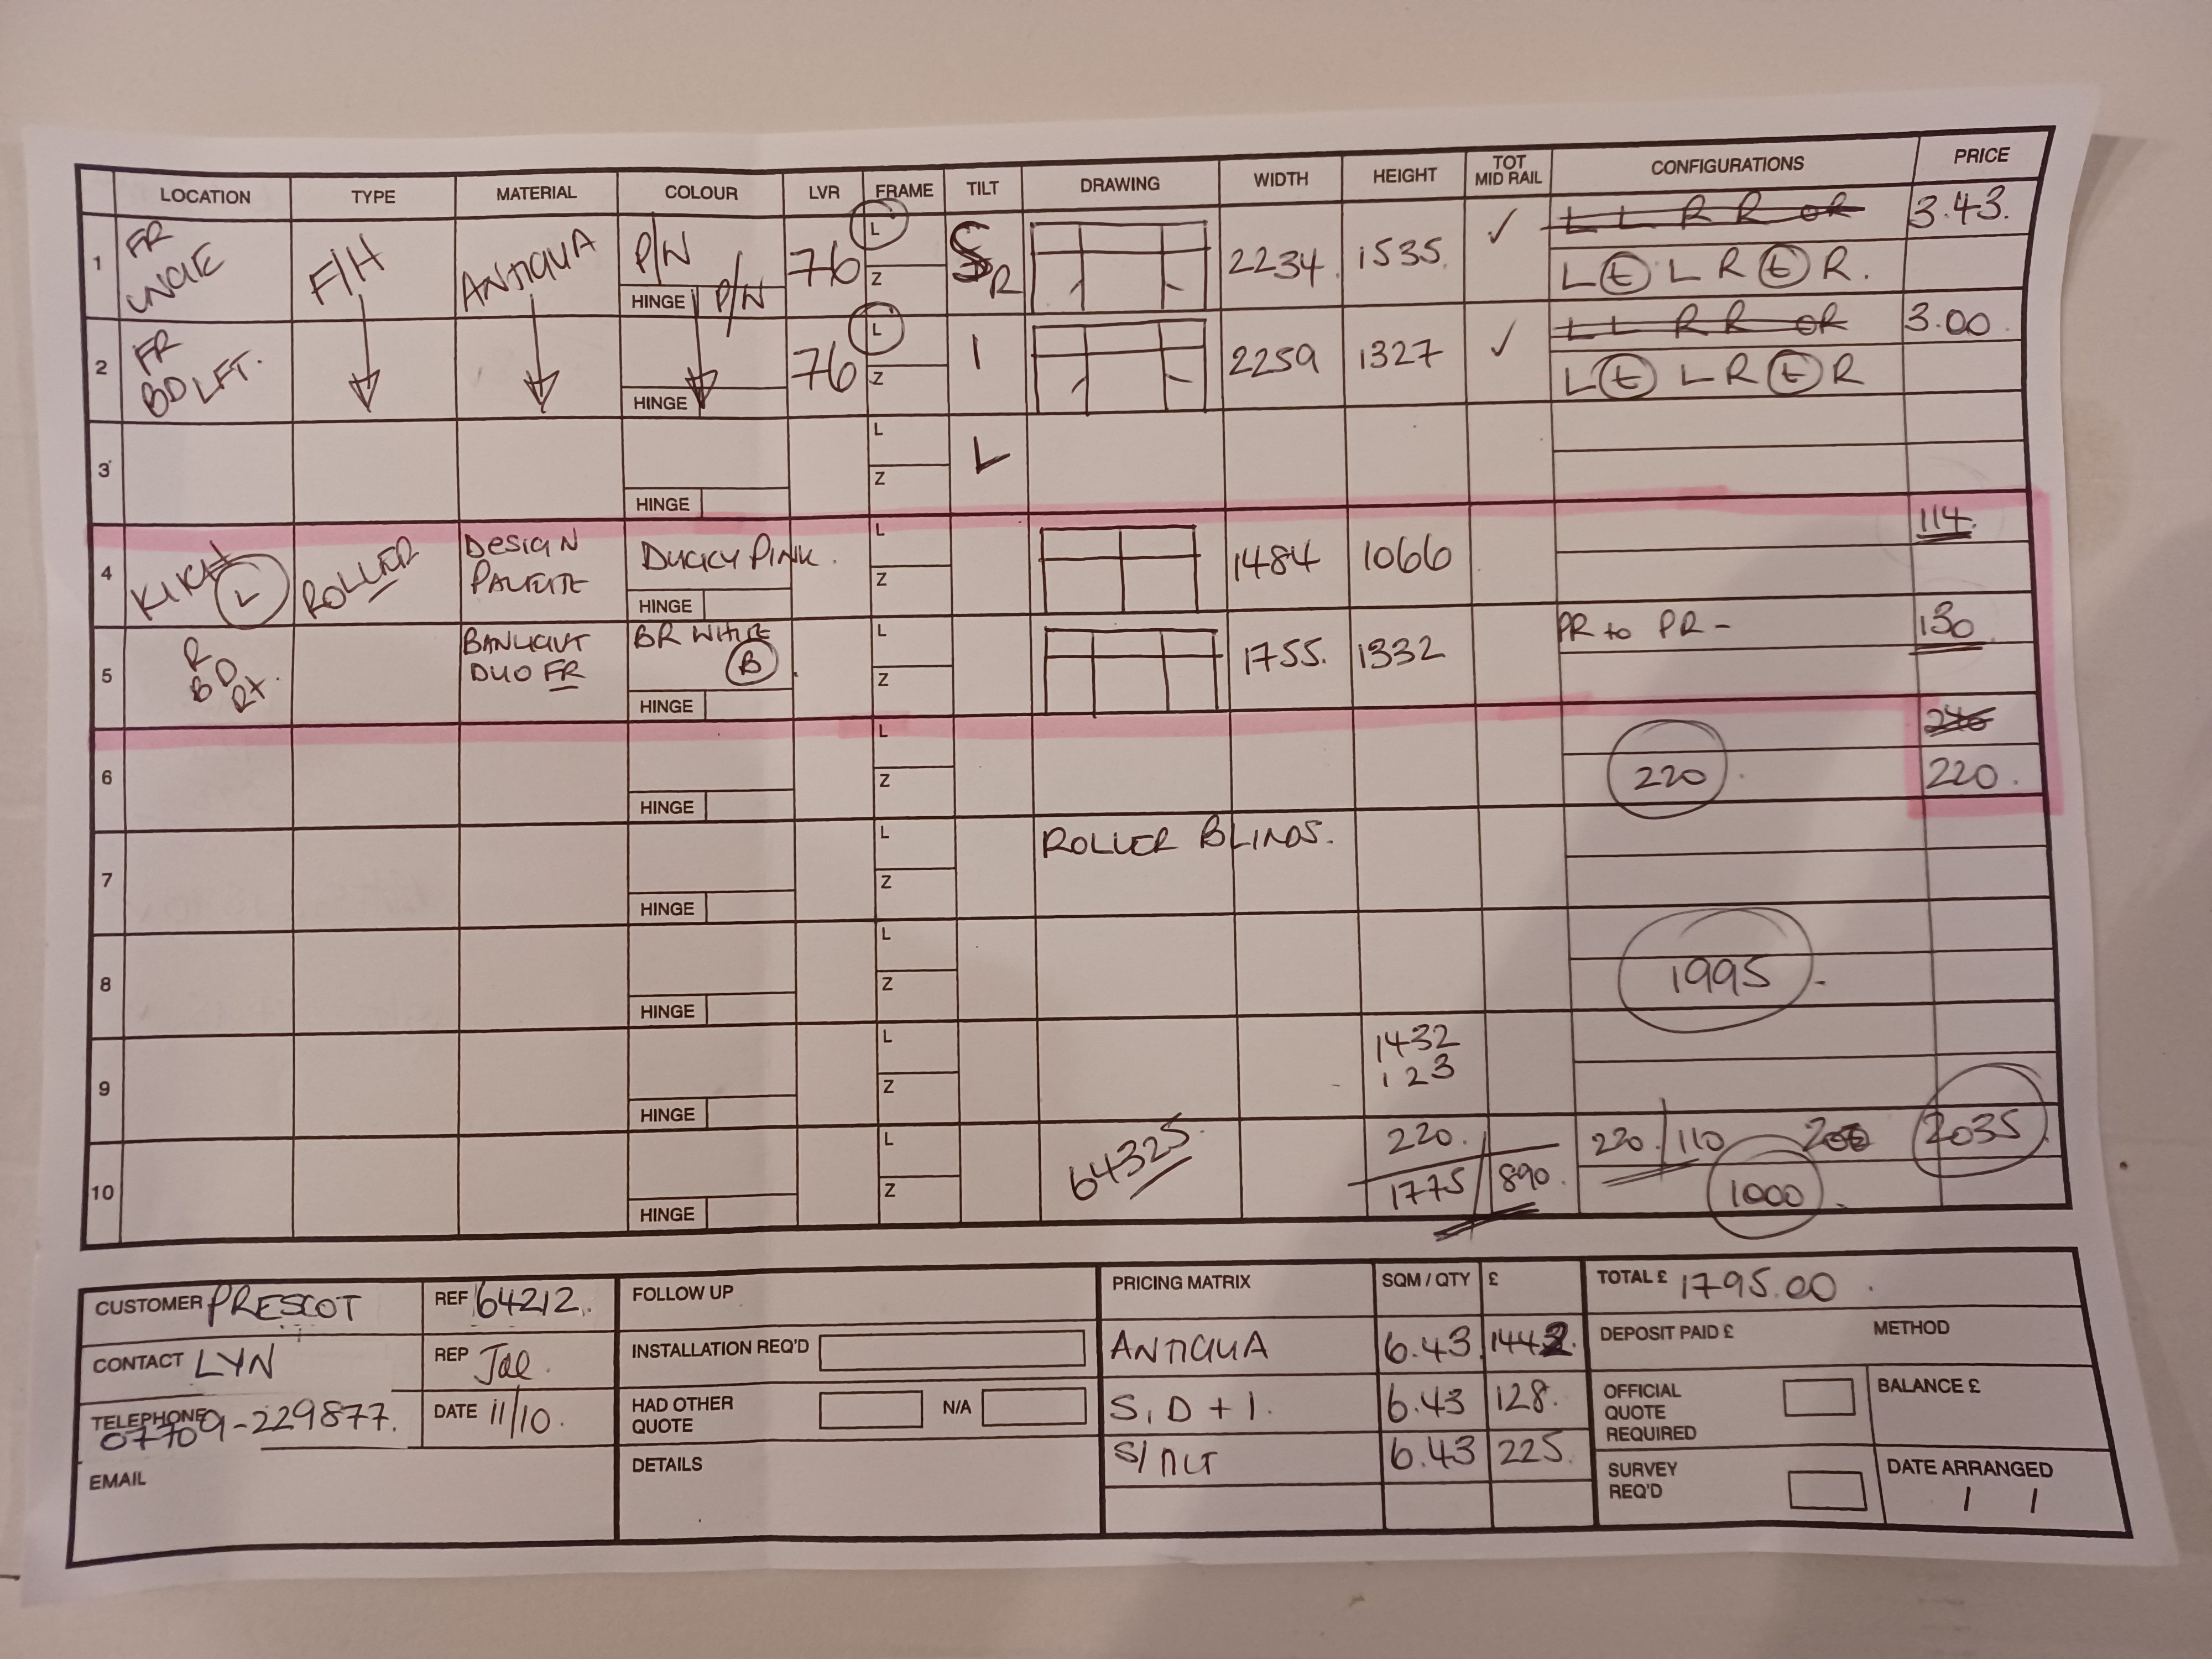 LOCATION TYPE MATERIAL COLOUR LVR FRAME TILT DRAWING WIDTH HEIGHT TOT MID RAIL CONFIGURATIONS PRICE
1 FR F/H ANTIQUA P/W 76 L Z S R 2234 1535 ✓ L L R R OR 3.43.
HINGE P/W L t L R t R.
2 FR BD LFT. 76 L Z I 2259 1327 ✓ L L R R OR 3.00
HINGE L t L R t R
3 L Z L
HINGE
4 KITCH L ROLLER DESIGN L Z 1484 1066 114.
PALETTE DUCKY PINK.
HINGE
5 R BD RT. BANLIGHT BR WHITE L Z 1755. 1332 PR to PR - 130
DUO FR B
HINGE
6 L Z 246
220 220.
HINGE
7 L Z ROLLER BLINDS.
HINGE
8 L Z 1995
HINGE
9 L Z 1432
123
HINGE
10 L Z 64325 220. 220./110 2035
1775/890. 1000
HINGE
CUSTOMER PRESCOT REF 64212.
CONTACT LYN REP Jae.
TELEPHONE 07709-229877. DATE 11/10.
EMAIL
FOLLOW UP
INSTALLATION REQ'D
HAD OTHER QUOTE N/A
DETAILS
PRICING MATRIX SQM / QTY £
ANTIQUA 6.43 1442.
S, D + I. 6.43 128.
S/TILT 6.43 225.
TOTAL £ 1795.00
DEPOSIT PAID £ METHOD
OFFICIAL QUOTE REQUIRED BALANCE £
SURVEY REQ'D DATE ARRANGED
/ /